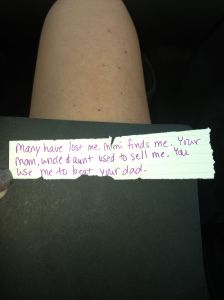 Many have lost me. Mimi finds me. Your
mom, uncle & aunt used to sell me. You
use me to beat your dad.